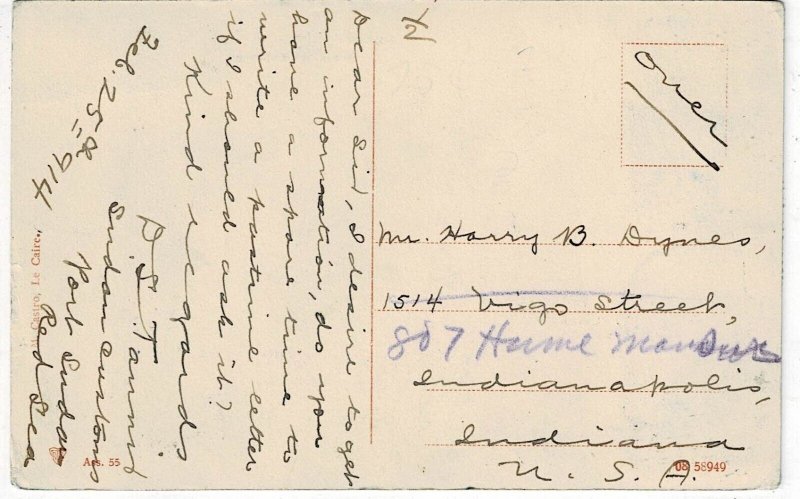 Dear Sir, I desire to get
an information, do you
have a spare time to
write a pastime letter
if I should ask it?
Kind regards
D. S. Tannis
Sudan Customs
Port Sudan
Red Sea
Feb. 25th 914
1/2
Over
Mr. Harry B. Dynes,
1514 Vigo Street,
807 Hume Mansur
Indianapolis,
Indiana
U. S. A.
Castro, Le Caire.
Ars. 55
08 58949